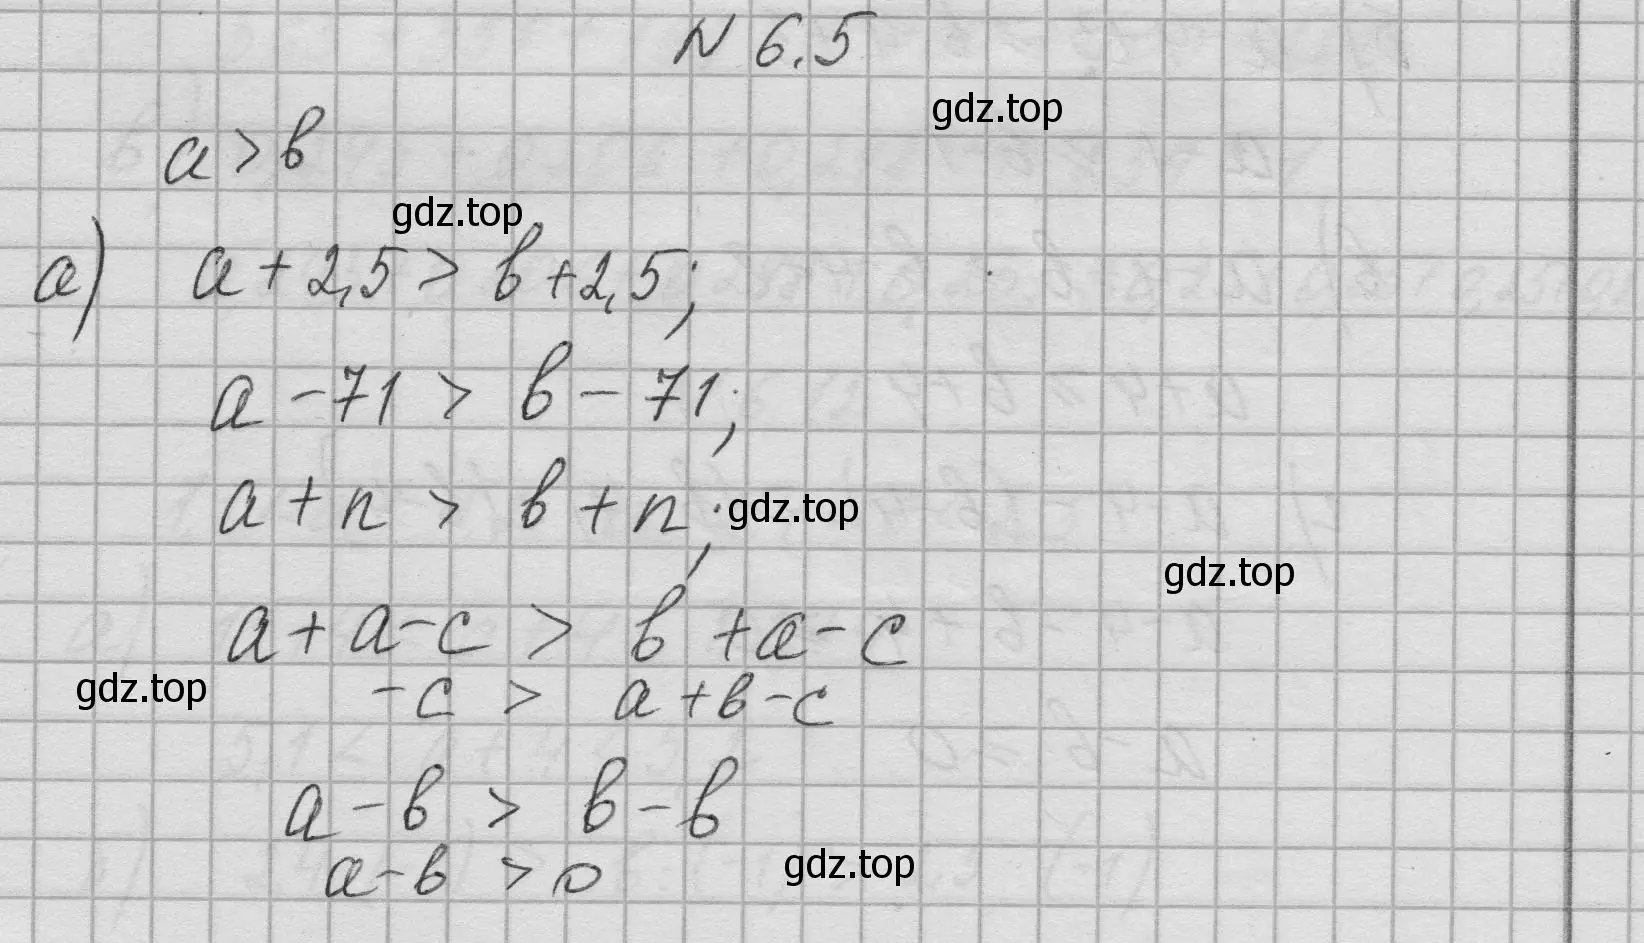 N 6.5
gdz.top
a > b
gdz.top
a) a + 2,5 > b + 2,5;
a - 71 > b - 71;
a + n > b + n;
gdz.top
gdz.top
a + a - c > b + a - c
gdz.top
- c > a + b - c
a - b > b - b
a - b > 0
gdz.top